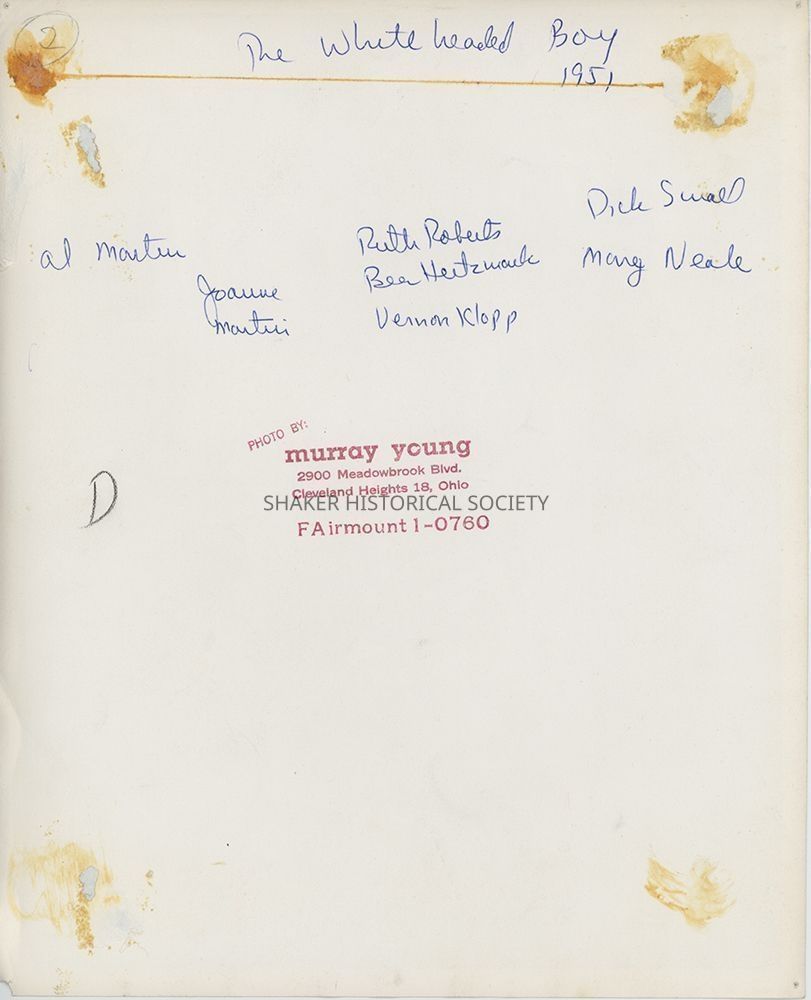 2
The White headed Boy
1951
Dick Small
Ruth Roberts
al Martin
Bea Hertzmark
Mary Neale
Joanne
Martin
Vernon Klopp
PHOTO BY:
murray young
2900 Meadowbrook Blvd.
Cleveland Heights 18, Ohio
SHAKER HISTORICAL SOCIETY
FAirmount 1-0760
D